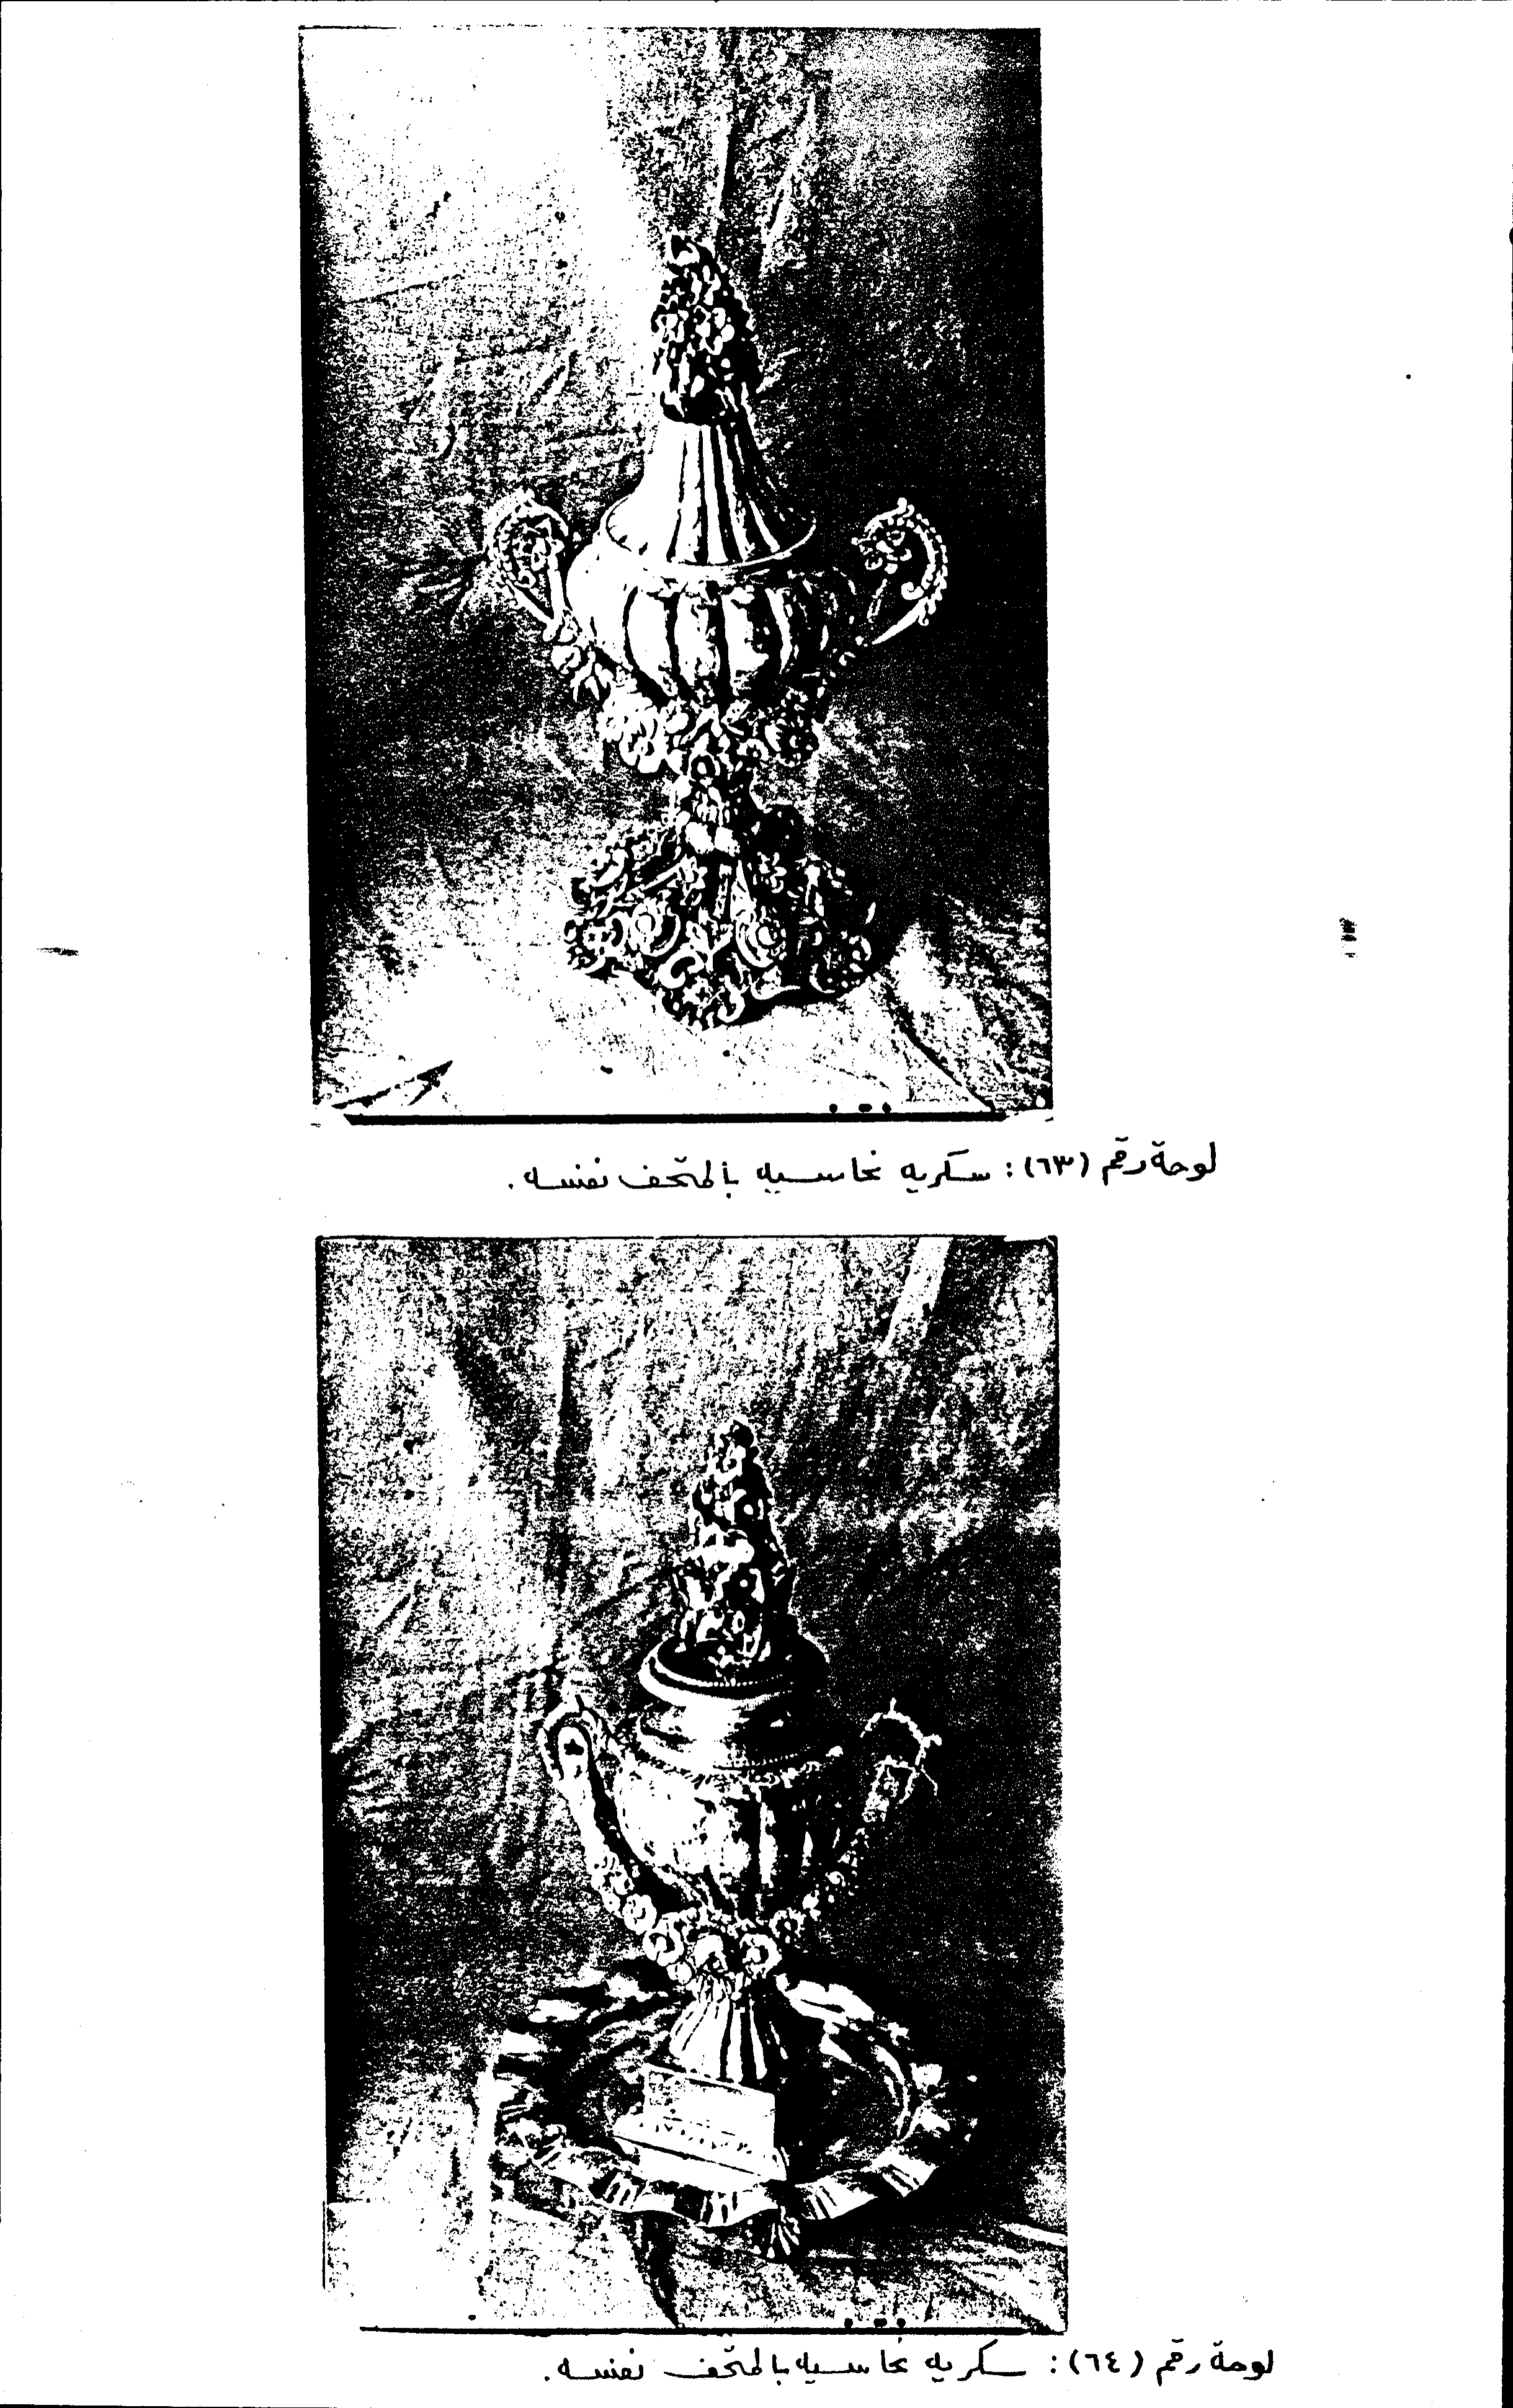 لوحة رقم (٦٣): سكريه نحاسيه بالمتحف نفسه.
لوحة رقم (٦٤): سكريه نحاسيه بالمتحف نفسه.